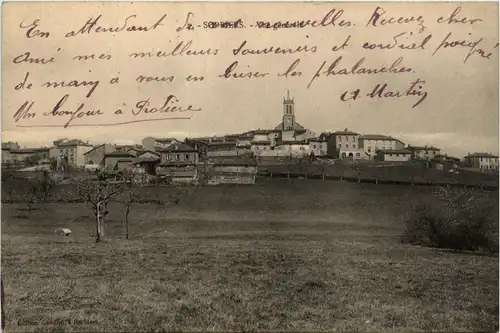 En attendant de vos nouvelles. Recevez cher
ami mes meilleurs souvenirs et cordial poigné
de main à vous en briser les phalanches.
Un bonjour à
A. Martin
Vue générale
Edition